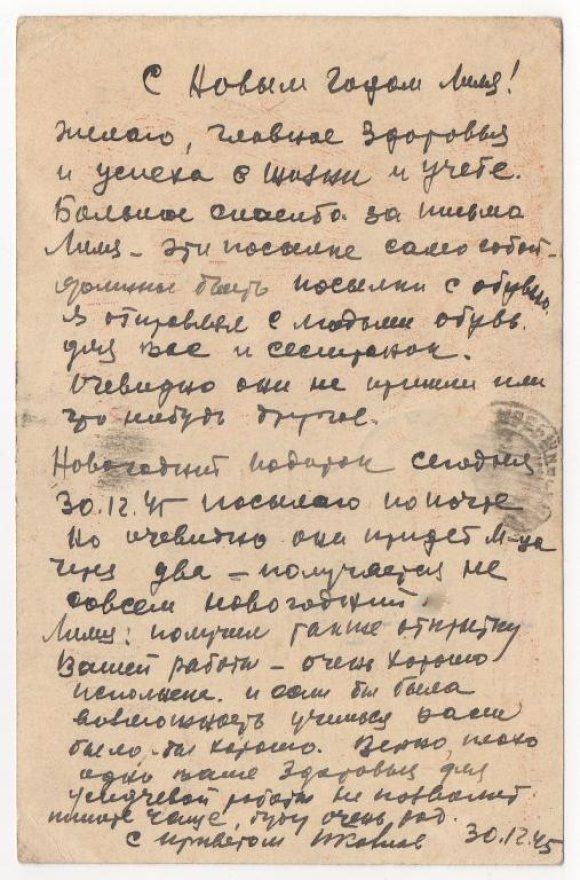 С Новым годом Лиля!
Желаю, главное здоровья
и успеха в жизни и учебе.
Большое спасибо за письма
Лиля – эти посылке само собой –
должны быть посылки с обувью.
Я отправлял с людьми обувь
для Вас и сестренок.
Очевидно они не пришли или
что нибудь другое.
Новогодний подарок сегодня
30.12.45 посылаю по почте
но очевидно она придет м-ца
через два – получается не
совсем новогодний.
Лиля: получил также открытку
Вашей работы – очень хорошо
исполнена. и если бы была
возможность учиться Вам
было бы хорошо. Верно, плохо
одно Ваше здоровья для
усидчевой работы не позволит.
пишите чаще, буду очень рад.
с приветом 30.12.45